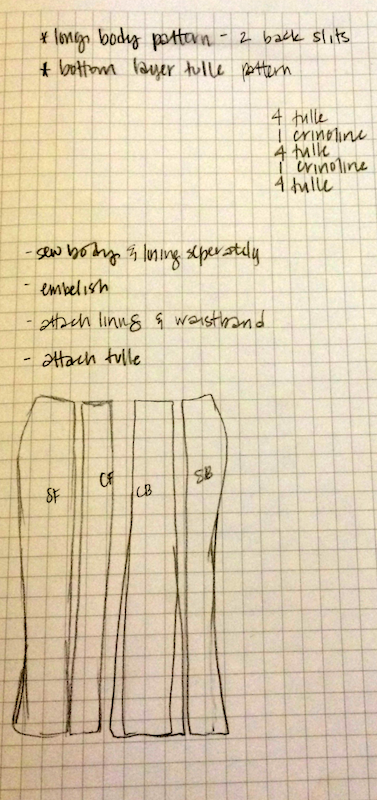 * long body pattern - 2 back slits
* bottom layer tulle pattern
4 tulle
1 crinoline
4 tulle
1 crinoline
4 tulle
- sew body & lining seperately
- embelish
- attach lining & waistband
- attach tulle
SF CF CB SB